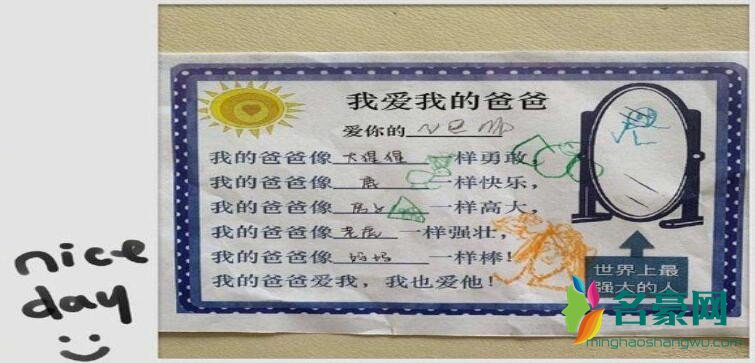 nice
day
我爱我的爸爸
爱你的
我的爸爸像大猩猩一样勇敢，
我的爸爸像鹿一样快乐，
我的爸爸像 一样高大，
我的爸爸像老虎一样强壮，
我的爸爸像妈妈一样棒！
我的爸爸爱我，我也爱他！
世界上最
强大的人
名豪网
minghaoshangwu.com